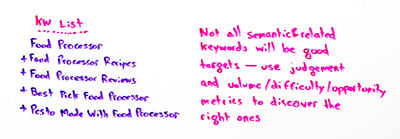 KW List
Food Processor
+ Food Processor Recipes
+ Food Processor Reviews
+ Best Pick Food Processor
+ Pesto Made With Food Processor
Not all semantic & related
keywords will be good
targets — use judgement
and volume/difficulty/opportunity
metrics to discover the
right ones